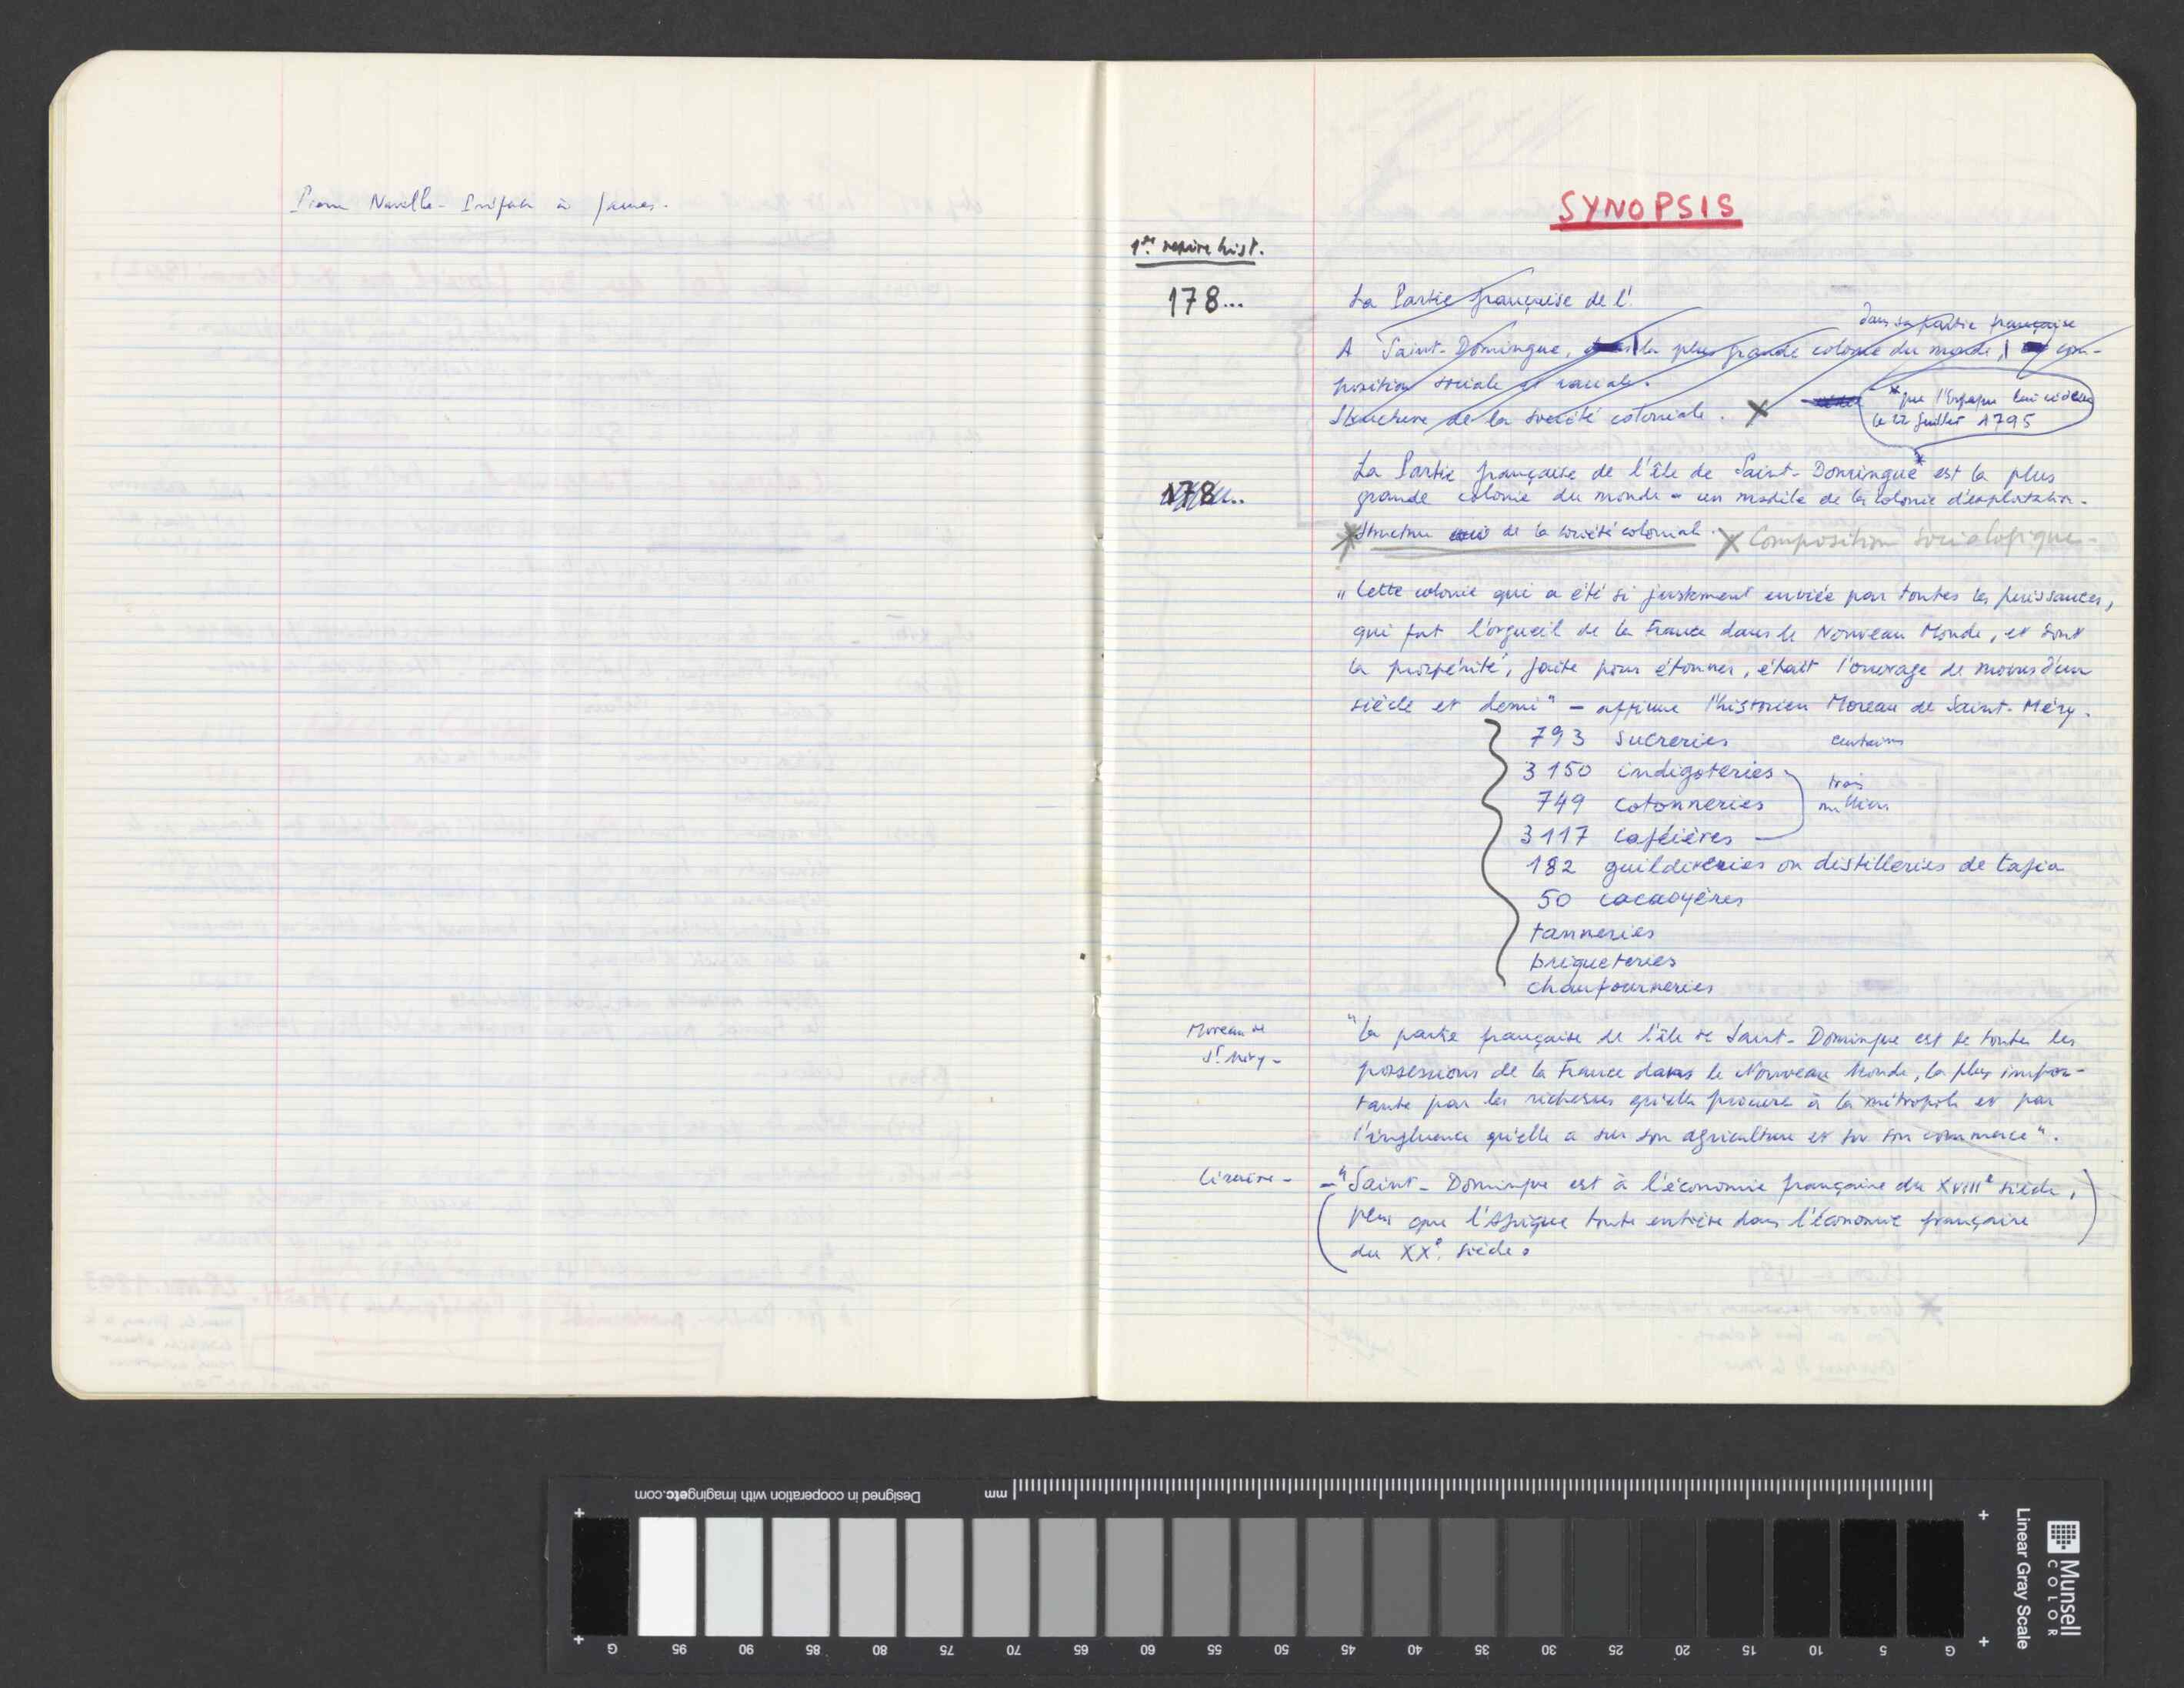 Pierre Naville - Préface à James.
SYNOPSIS
1er repère hist.
178...
La Partie française de l'
dans sa partie française
A Saint-Domingue, la plus grande colonie du monde, com-
position sociale et raciale.
Structure de la société coloniale.
* que l'Espagne lui cédera
le 22 Juillet 1795
La Partie française de l'île de Saint-Domingue* est la plus
178...
grande colonie du monde - un modèle de la colonie d'exploitation.
Structure de la société coloniale. Composition sociologique -
"Cette colonie qui a été si justement enviée par toutes les puissances,
qui fut l'orgueil de la France dans le Nouveau Monde, et dont
la prospérité, faite pour étonner, était l'ouvrage de moins d'un
siècle et demi" - affirme l'historien Moreau de Saint-Méry.
793 sucreries centaines
3150 indigoteries
trois
749 cotonneries milliers
3117 caféières
182 guildiveries ou distilleries de tafia
50 cacaoyères
tanneries
briqueteries
chaufourneries
Moreau de
St Méry -
"La partie française de l'île de Saint-Domingue est de toutes les
possessions de la France dans le Nouveau Monde, la plus impor-
tante par les richesses qu'elle procure à la métropole et par
l'influence qu'elle a sur son agriculture et sur son commerce".
Césaire -
- "Saint-Domingue est à l'économie française du XVIIIe siècle,
plus que l'Afrique toute entière dans l'économie française
du XXe siècle.
Designed in cooperation with imagingetc.com
mm
G 95 90 85 80 75 70 65 60 55 50 45 40 35 30 25 20 15 10 5 G
Munsell
COLOR
Linear Gray Scale